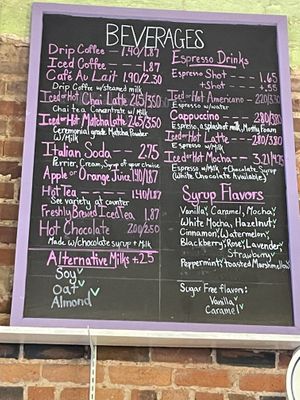 BEVERAGES
Drip Coffee --- 1.40/1.87
Iced Coffee --- 1.87
Café Au Lait 1.90/2.30
Drip Coffee w/steamed milk
Iced or Hot Chai Latte
Chai tea Concentrate w/ milk
Iced or Hot Matcha Latte
Ceremonial grade Matcha Powder
w/ Milk
Italian Soda --- 2.75
Perrier, Cream, Syrup of your choice
Apple or Orange Juice 1.40/1.87
Hot Tea --- 1.40/1.87
See variety at counter
Freshly Brewed Iced Tea 1.87
Hot Chocolate 2.00/2.50
Made w/chocolate syrup + Milk
Alternative Milks +.25
Soy
Oat
Almond
Espresso Drinks
Espresso Shot --- 1.65
+Shot --- +.55
Iced or Hot Americano
Espresso w/water
Cappuccino --- 2.80/3.80
Espresso, a splash of milk, Mostly Foam
Iced or Hot Latte --- 2.80/3.80
Espresso w/ Milk
Iced or Hot Mocha --- 3.21
Espresso w/ Milk + Chocolate Syrup
(White Chocolate Available)
Syrup Flavors
Vanilla, Caramel, Mocha
White Mocha, Hazelnut
Cinnamon, Watermelon
Blackberry, Rose, Lavender
Strawberry
Peppermint, toasted Marshmallow
Sugar Free flavors:
Vanilla
Caramel